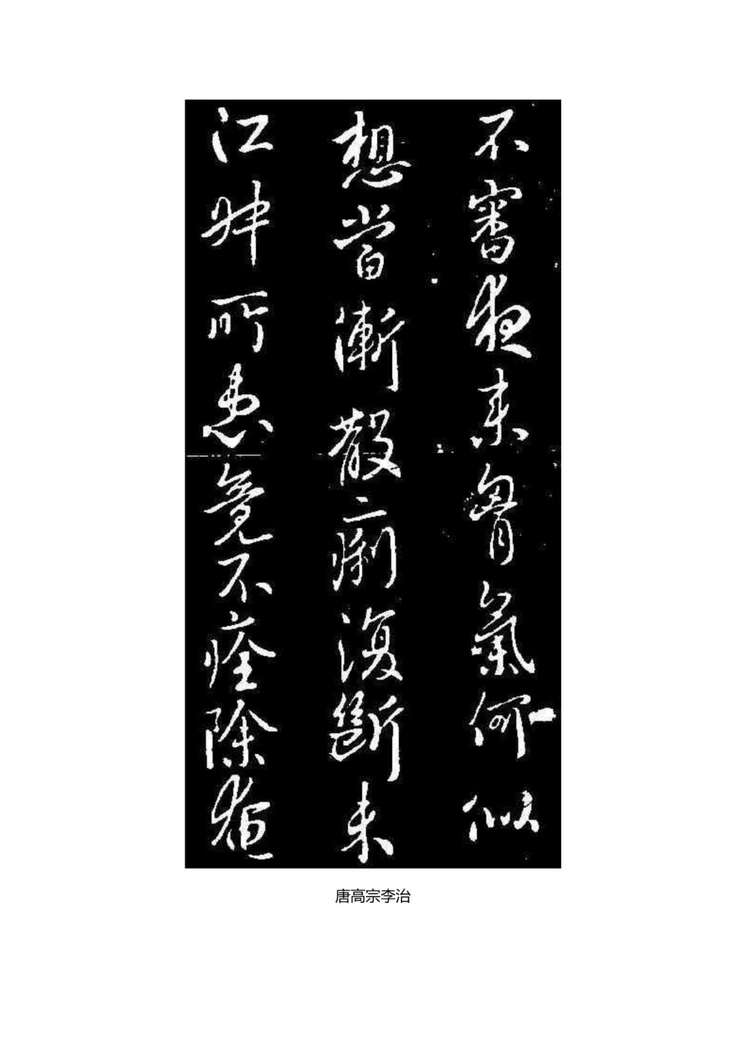 不審夜來胷氣何似
想當漸散痢復斷未
江叔所患竟不痊除
唐高宗李治